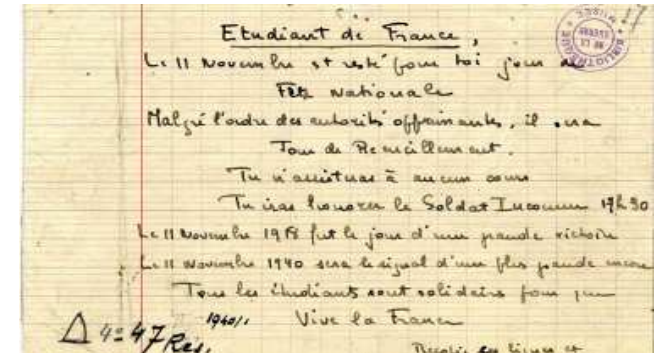 17
Etudiant de France,
Le 11 Novembre est resté pour toi jour de
Fête Nationale
Malgré l'ordre des autorités opprimantes, il sera
Jour de Recueillement.
Tu n'assisteras à aucun cours
Tu iras honorer le Soldat Inconnu 17h30
Le 11 Novembre 1918 fut le jour d'une grande victoire
Le 11 Novembre 1940 sera le signal d'une plus grande encore
Tous les étudiants sont solidaires pour que
Vive la France
1940/1
4º 47 Rés.
Recopie ces lignes et